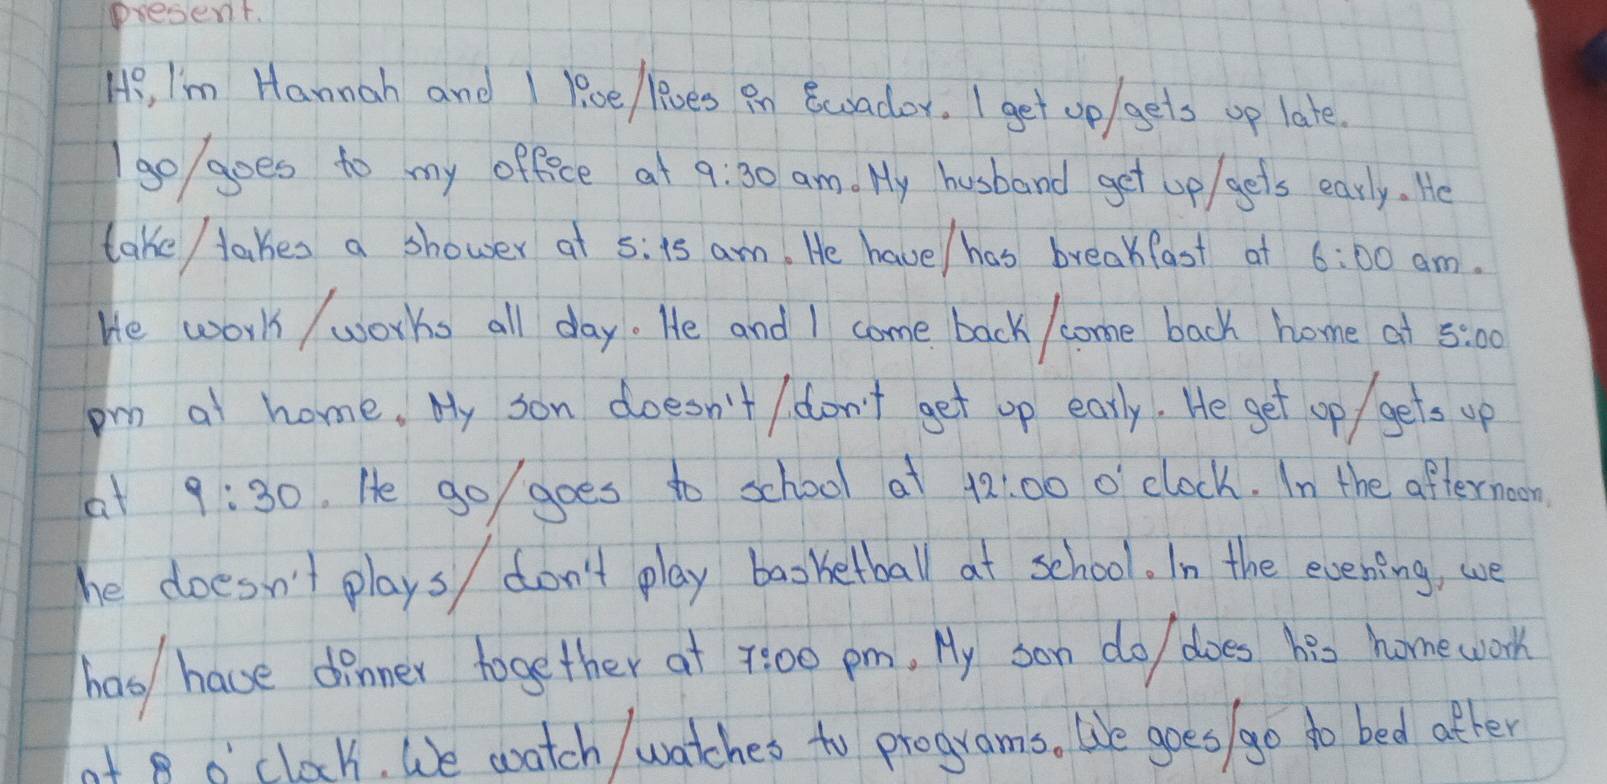 present.
Hi, I'm Hannah and I live/lives in Ecuador. I get up/gets up late.
I go/goes to my office at 9:30 am. My husband get up/gets early. He
take/takes a shower at 5:15 am. He have/has breakfast at 6:00 am.
He work/works all day. He and I come back/come back home at 5:00
pm at home. My son doesn't/don't get up early. He get up/gets up
at 9:30. He go/goes to school at 12:00 o'clock. In the afternoon,
he doesn't plays/don't play basketball at school. In the evening, we
has/have dinner together at 7:00 pm. My son do/does his homework
at 8 o'clock. We watch/watches tv programs. We goes/go to bed after